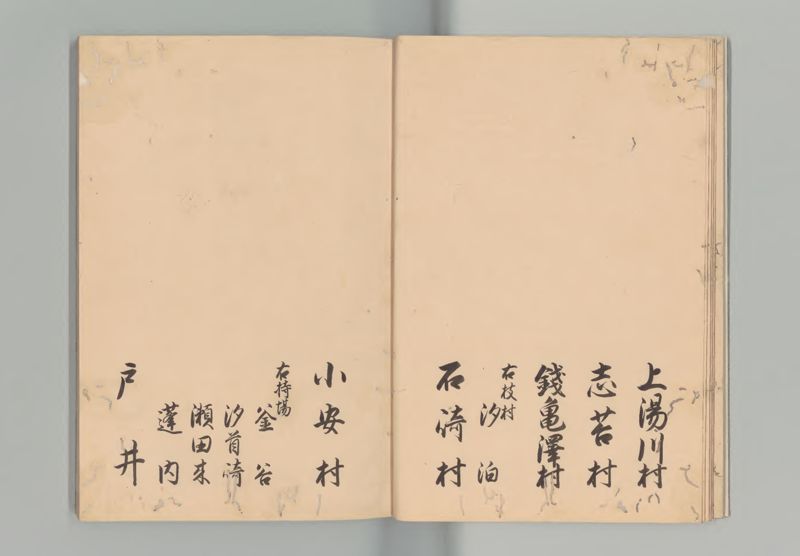 上湯川村
志苔村
錢亀澤村
右枝村
汐泊
石﨑村
小安村
右持場
釜谷
汐首﨑
瀬田来
蓬内
戸井